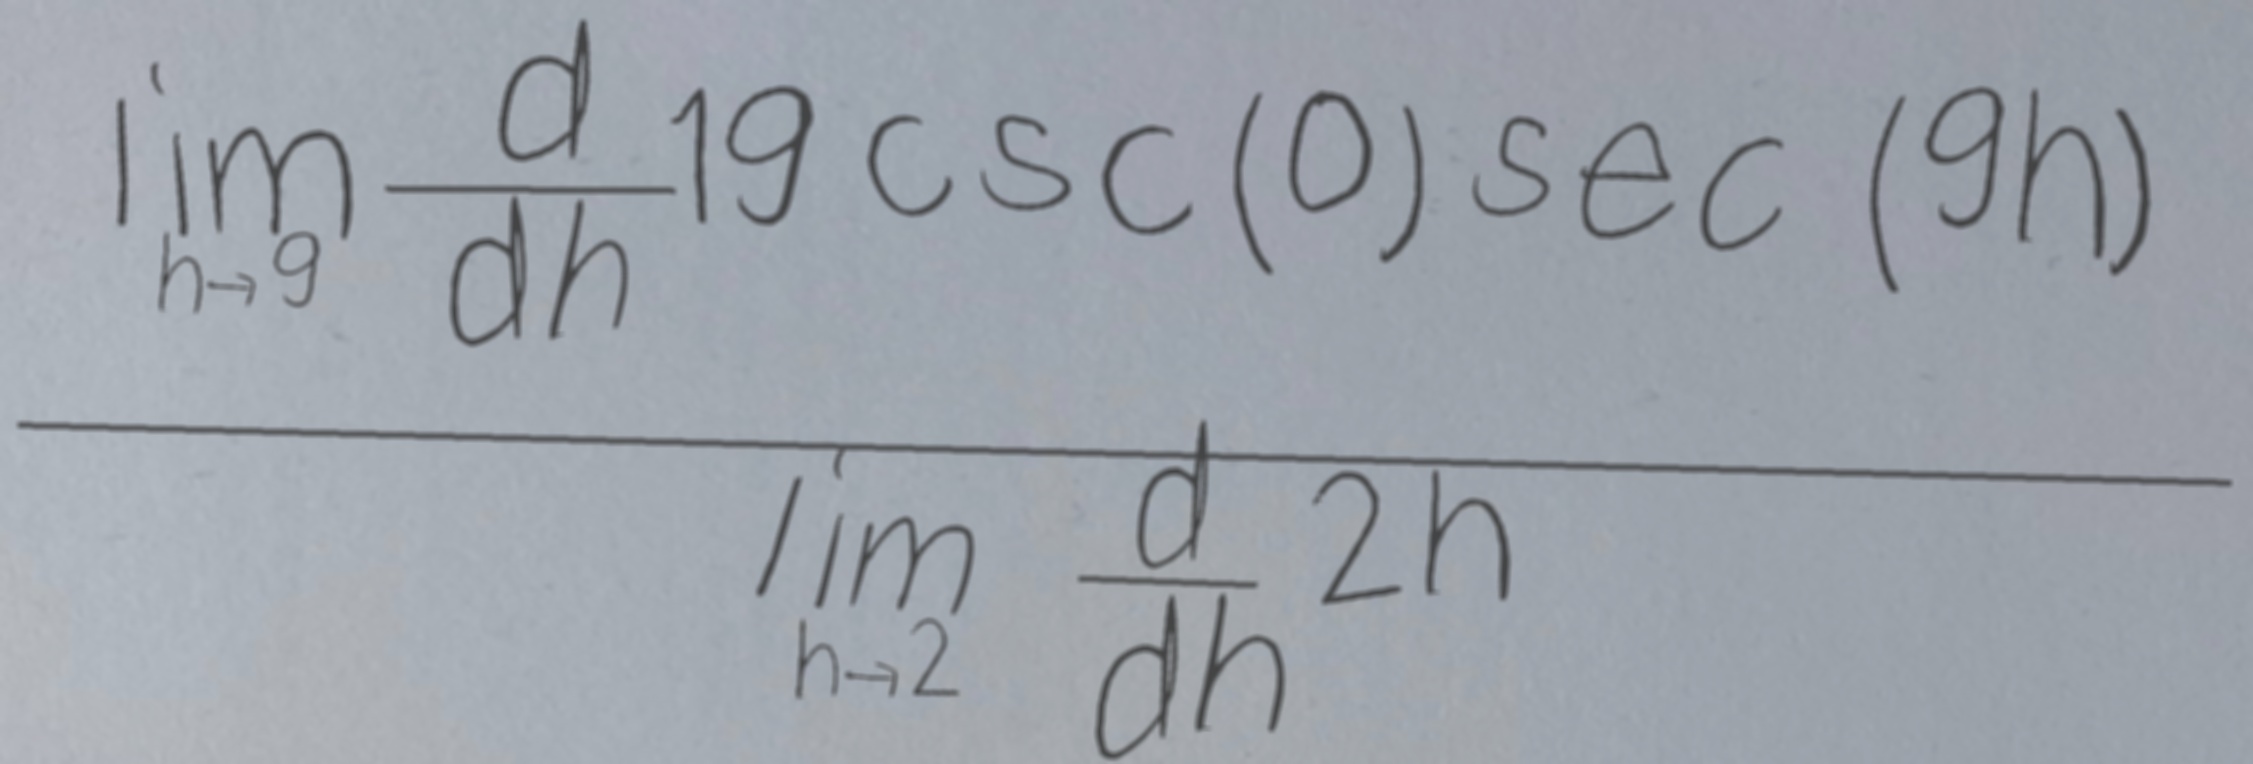 \frac{\lim_{h \to 9} \frac{d}{dh} 19 \csc(0) \sec(9h)}{\lim_{h \to 2} \frac{d}{dh} 2h}